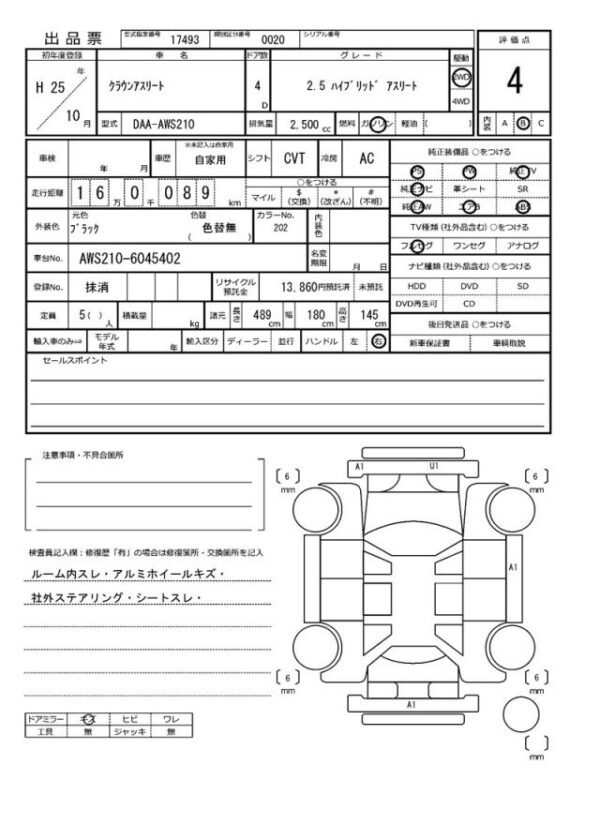 出品票 型式指定番号 17493 類別区分番号 0020 シリアル番号
評価点
4
内装 A B C
初年度登録 車名 ドア数 グレード 駆動
H 25 年 10 月
クラウンアスリート 4 D 2.5 ハイブリッド アスリート 2WD
4WD
型式 DAA-AWS210 排気量 2,500 cc 燃料 ガソリン 軽油 ( )
車検 年 月 車歴 ※未記入は自家用 自家用 シフト CVT 冷房 AC
走行距離 1 6 万 0 千 0 8 9 km
○をつける
マイル $ (交換) * (改ざん) # (不明)
外装色 元色 ブラック 色替 ( 色替無 ) カラーNo. 202 内装色
車台No. AWS210-6045402 名変期限 月 日
登録No. 抹消 リサイクル預託金 13,860円預託済 未預託
定員 5( )人 積載量 kg 諸元 長さ 489 cm 幅 180 cm 高さ 145 cm
輸入車のみ⇒ モデル年式 年 輸入区分 ディーラー 並行 ハンドル 左 右
純正装備品 ○をつける
PS PW 純正TV
純正ナビ 革シート SR
純正AW エアB ABS
TV種類(社外品含む)○をつける
フルセグ ワンセグ アナログ
ナビ種類(社外品含む)○をつける
HDD DVD SD
DVD再生可 CD
後日発送品 ○をつける
新車保証書 車輌取説
セールスポイント
注意事項・不具合箇所
検査員記入欄:修復歴「有」の場合は修復箇所・交換箇所を記入
ルーム内スレ・アルミホイールキズ・
社外ステアリング・シートスレ・
ドアミラー キズ ヒビ ワレ
工具 無 ジャッキ 無
( 6 ) mm
A1 U1
( 6 ) mm
A1
( 6 ) mm
A1
( 6 ) mm
( ) mm